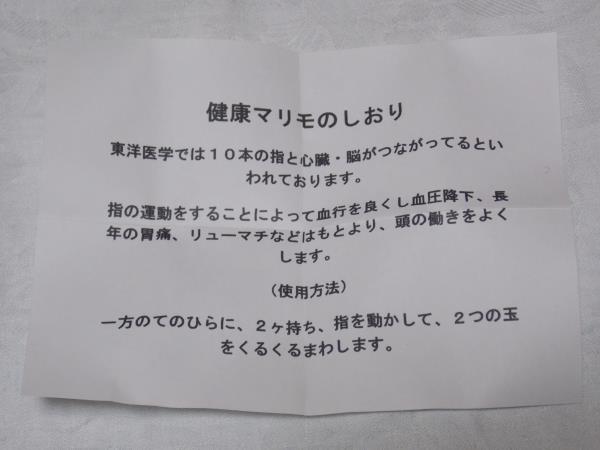 健康マリモのしおり
東洋医学では１０本の指と心臓・脳がつながってるとい
われております。
指の運動をすることによって血行を良くし血圧降下、長
年の胃痛、リューマチなどはもとより、頭の働きをよく
します。
（使用方法）
一方のてのひらに、２ヶ持ち、指を動かして、２つの玉
をくるくるまわします。